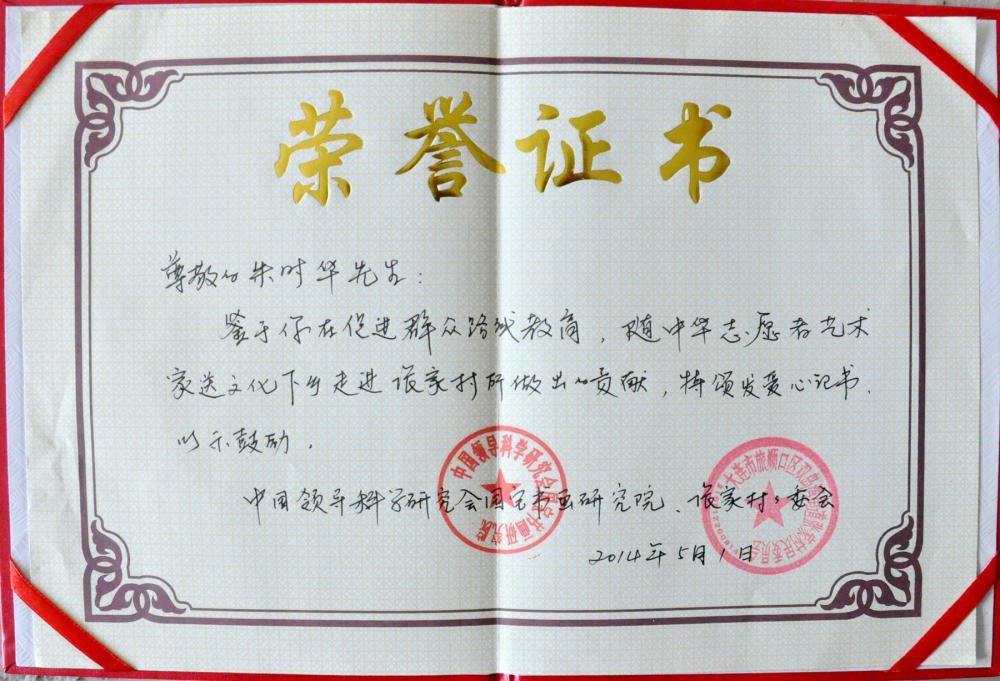 荣誉证书
尊敬的朱时华先生：
鉴于你在促进群众路线教育，随中华志愿者艺术
家送文化下乡走进张家村所做出的贡献，特颁发爱心证书，
以示鼓励。
中国领导科学研究会国宾书画研究院、张家村村委会
2014年5月1日
中国领导科学研究会国宾书画研究院
大连市旅顺口区双岛湾街道张家村村民委员会